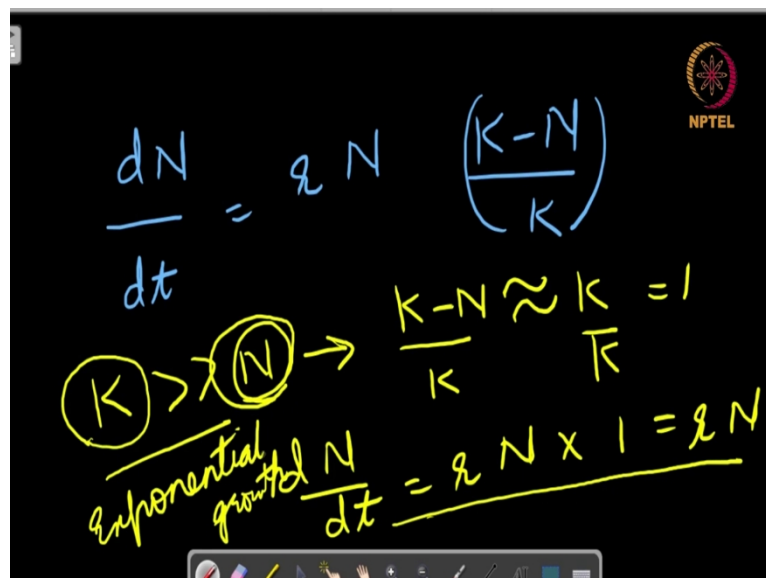 NPTEL
dN/dt = r N (K-N/K)
K >> N → K-N/K ≈ K/K = 1
exponential growth
dN/dt = r N x 1 = r N